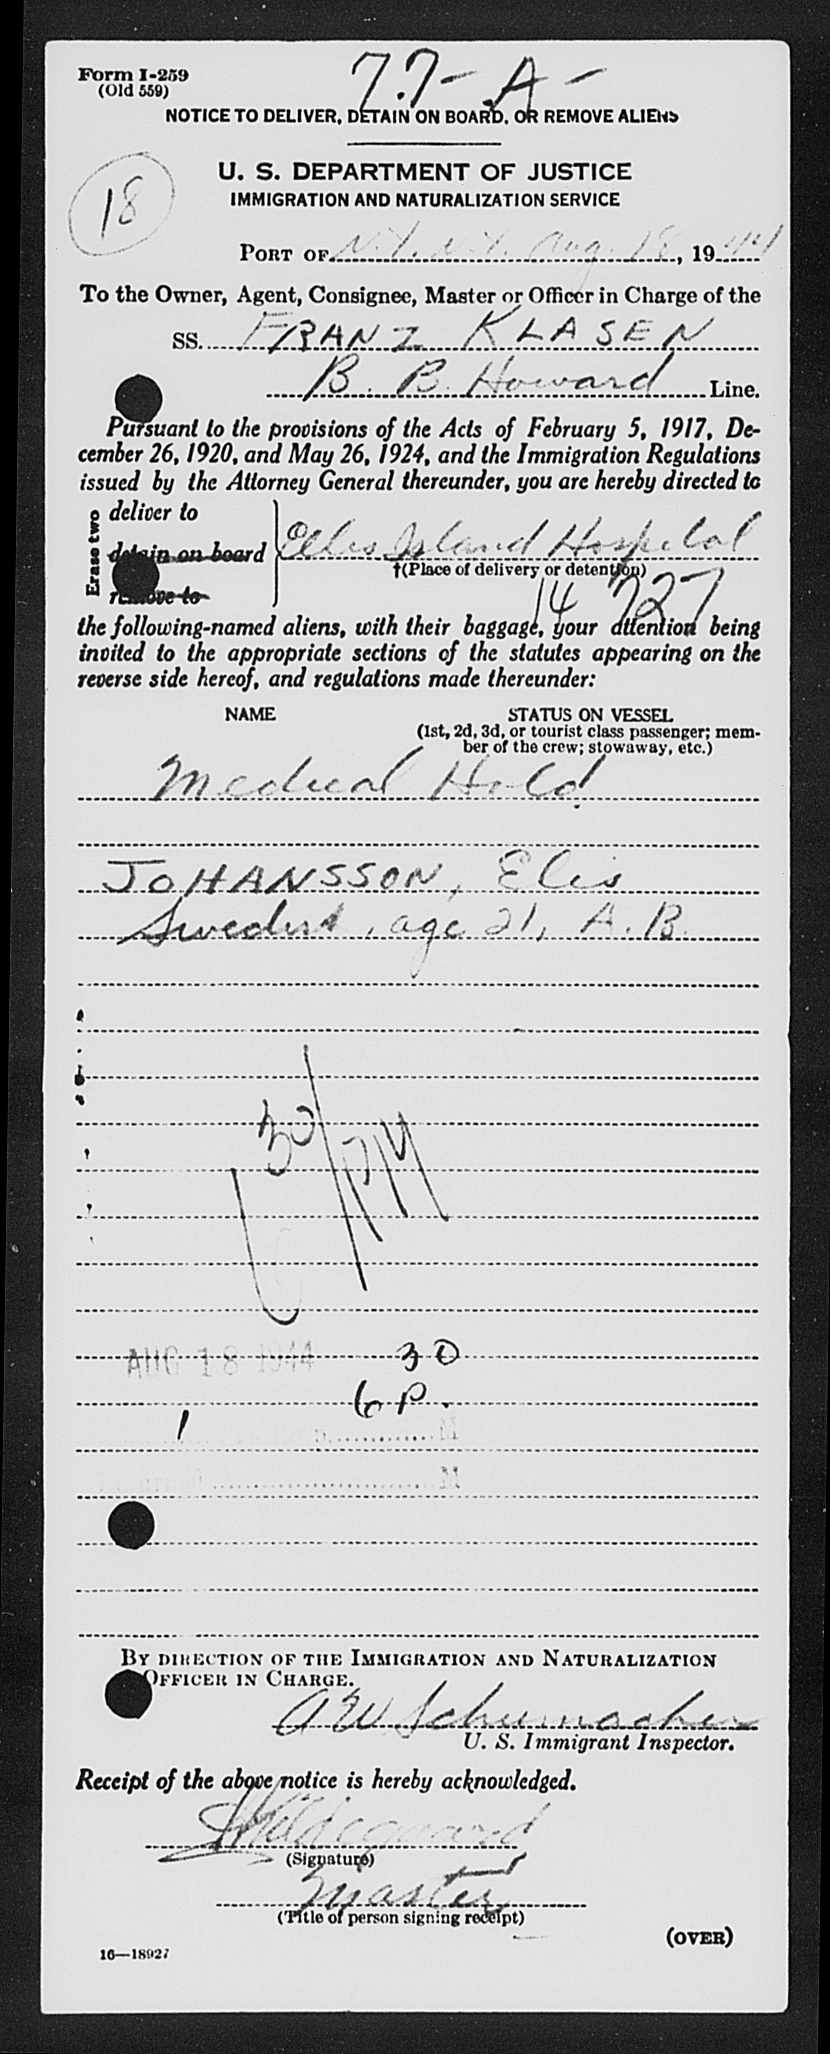 Form I-259
(Old 559)
7.7-A-
NOTICE TO DELIVER, DETAIN ON BOARD, OR REMOVE ALIENS
U. S. DEPARTMENT OF JUSTICE
IMMIGRATION AND NATURALIZATION SERVICE
18
PORT OF N.Y. N.Y. Aug. 18, 1944
To the Owner, Agent, Consignee, Master or Officer in Charge of the
SS. FRANZ KLASEN
B. B. Howard Line.
Pursuant to the provisions of the Acts of February 5, 1917, De-
cember 26, 1920, and May 26, 1924, and the Immigration Regulations
issued by the Attorney General thereunder, you are hereby directed to
Erase two
deliver to
detain on board
remove to
Ellis Island Hospital
†(Place of delivery or detention)
14 727
the following-named aliens, with their baggage, your attention being
invited to the appropriate sections of the statutes appearing on the
reverse side hereof, and regulations made thereunder:
NAME STATUS ON VESSEL
(1st, 2d, 3d, or tourist class passenger; mem-
ber of the crew; stowaway, etc.)
Medical Hold
JOHANSSON, Elis
Swedish, age 21, A.B.
6 30/PM
AUG 18 1944 30
1 6 P.
M
M
BY DIRECTION OF THE IMMIGRATION AND NATURALIZATION
OFFICER IN CHARGE.
A W Schumacher
U. S. Immigrant Inspector.
Receipt of the above notice is hereby acknowledged.
(Signature)
Master
(Title of person signing receipt)
(OVER)
16—18927